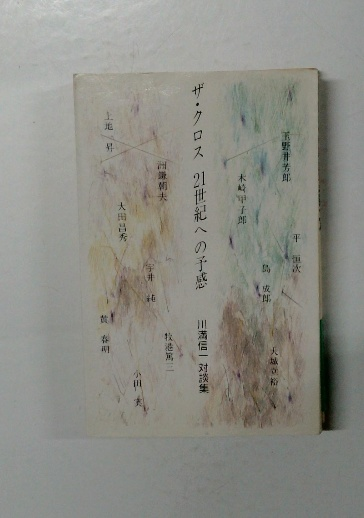 玉野井芳郎
平 恒次
木崎甲子郎
島 成郎
大城立裕
ザ・クロス 21世紀への予感
川満信一対談集
上地 昇
洲鎌朝夫
大田昌秀
宇井 純
牧港篤三
黄 春明
小田 実